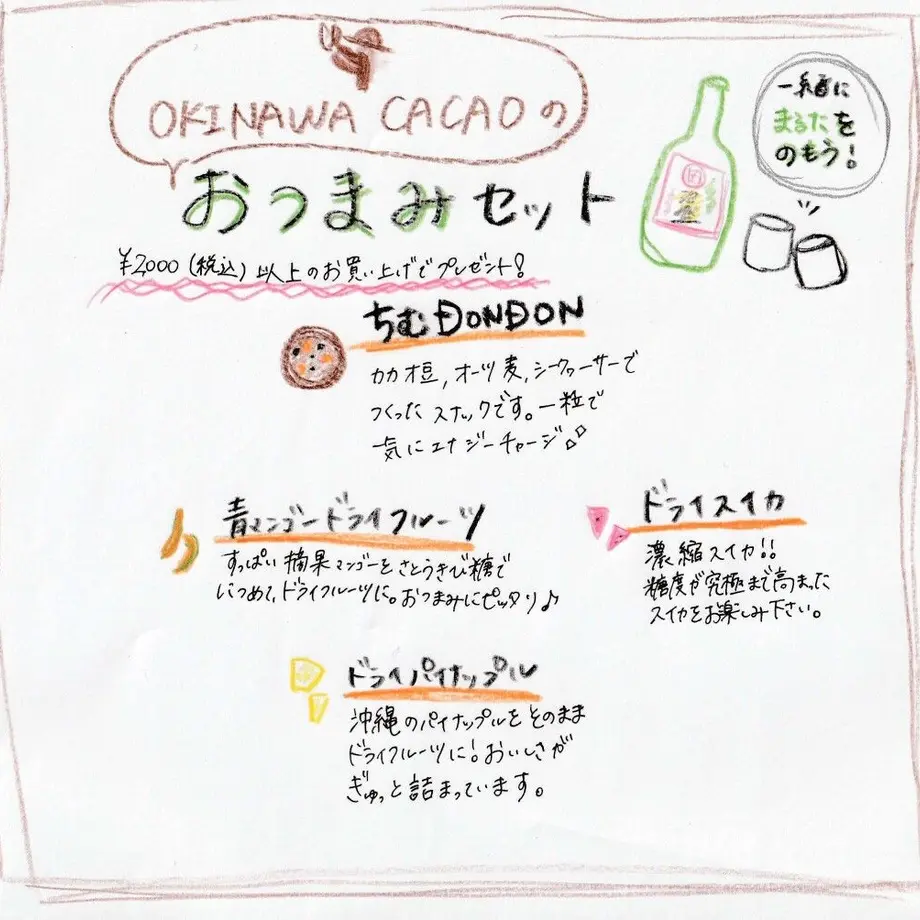 OKINAWA CACAOの
おつまみセット
一緒に
まるたを
のもう!
¥2,000(税込)以上のお買い上げでプレゼント!
ちむDONDON
カカオ豆,オーツ麦,シークヮーサーで
つくった スナックです。一粒で
一気にエナジーチャージ
青マンゴードライフルーツ
すっぱい摘果マンゴーをさとうきび糖で
につめて、ドライフルーツに。おつまみにピッタリ♪
ドライスイカ
濃縮スイカ!!
糖度が究極まで高まった
スイカをお楽しみ下さい。
ドライパイナップル
沖縄のパイナップルをそのまま
ドライフルーツに!おいしさが
ぎゅっと詰まっています。